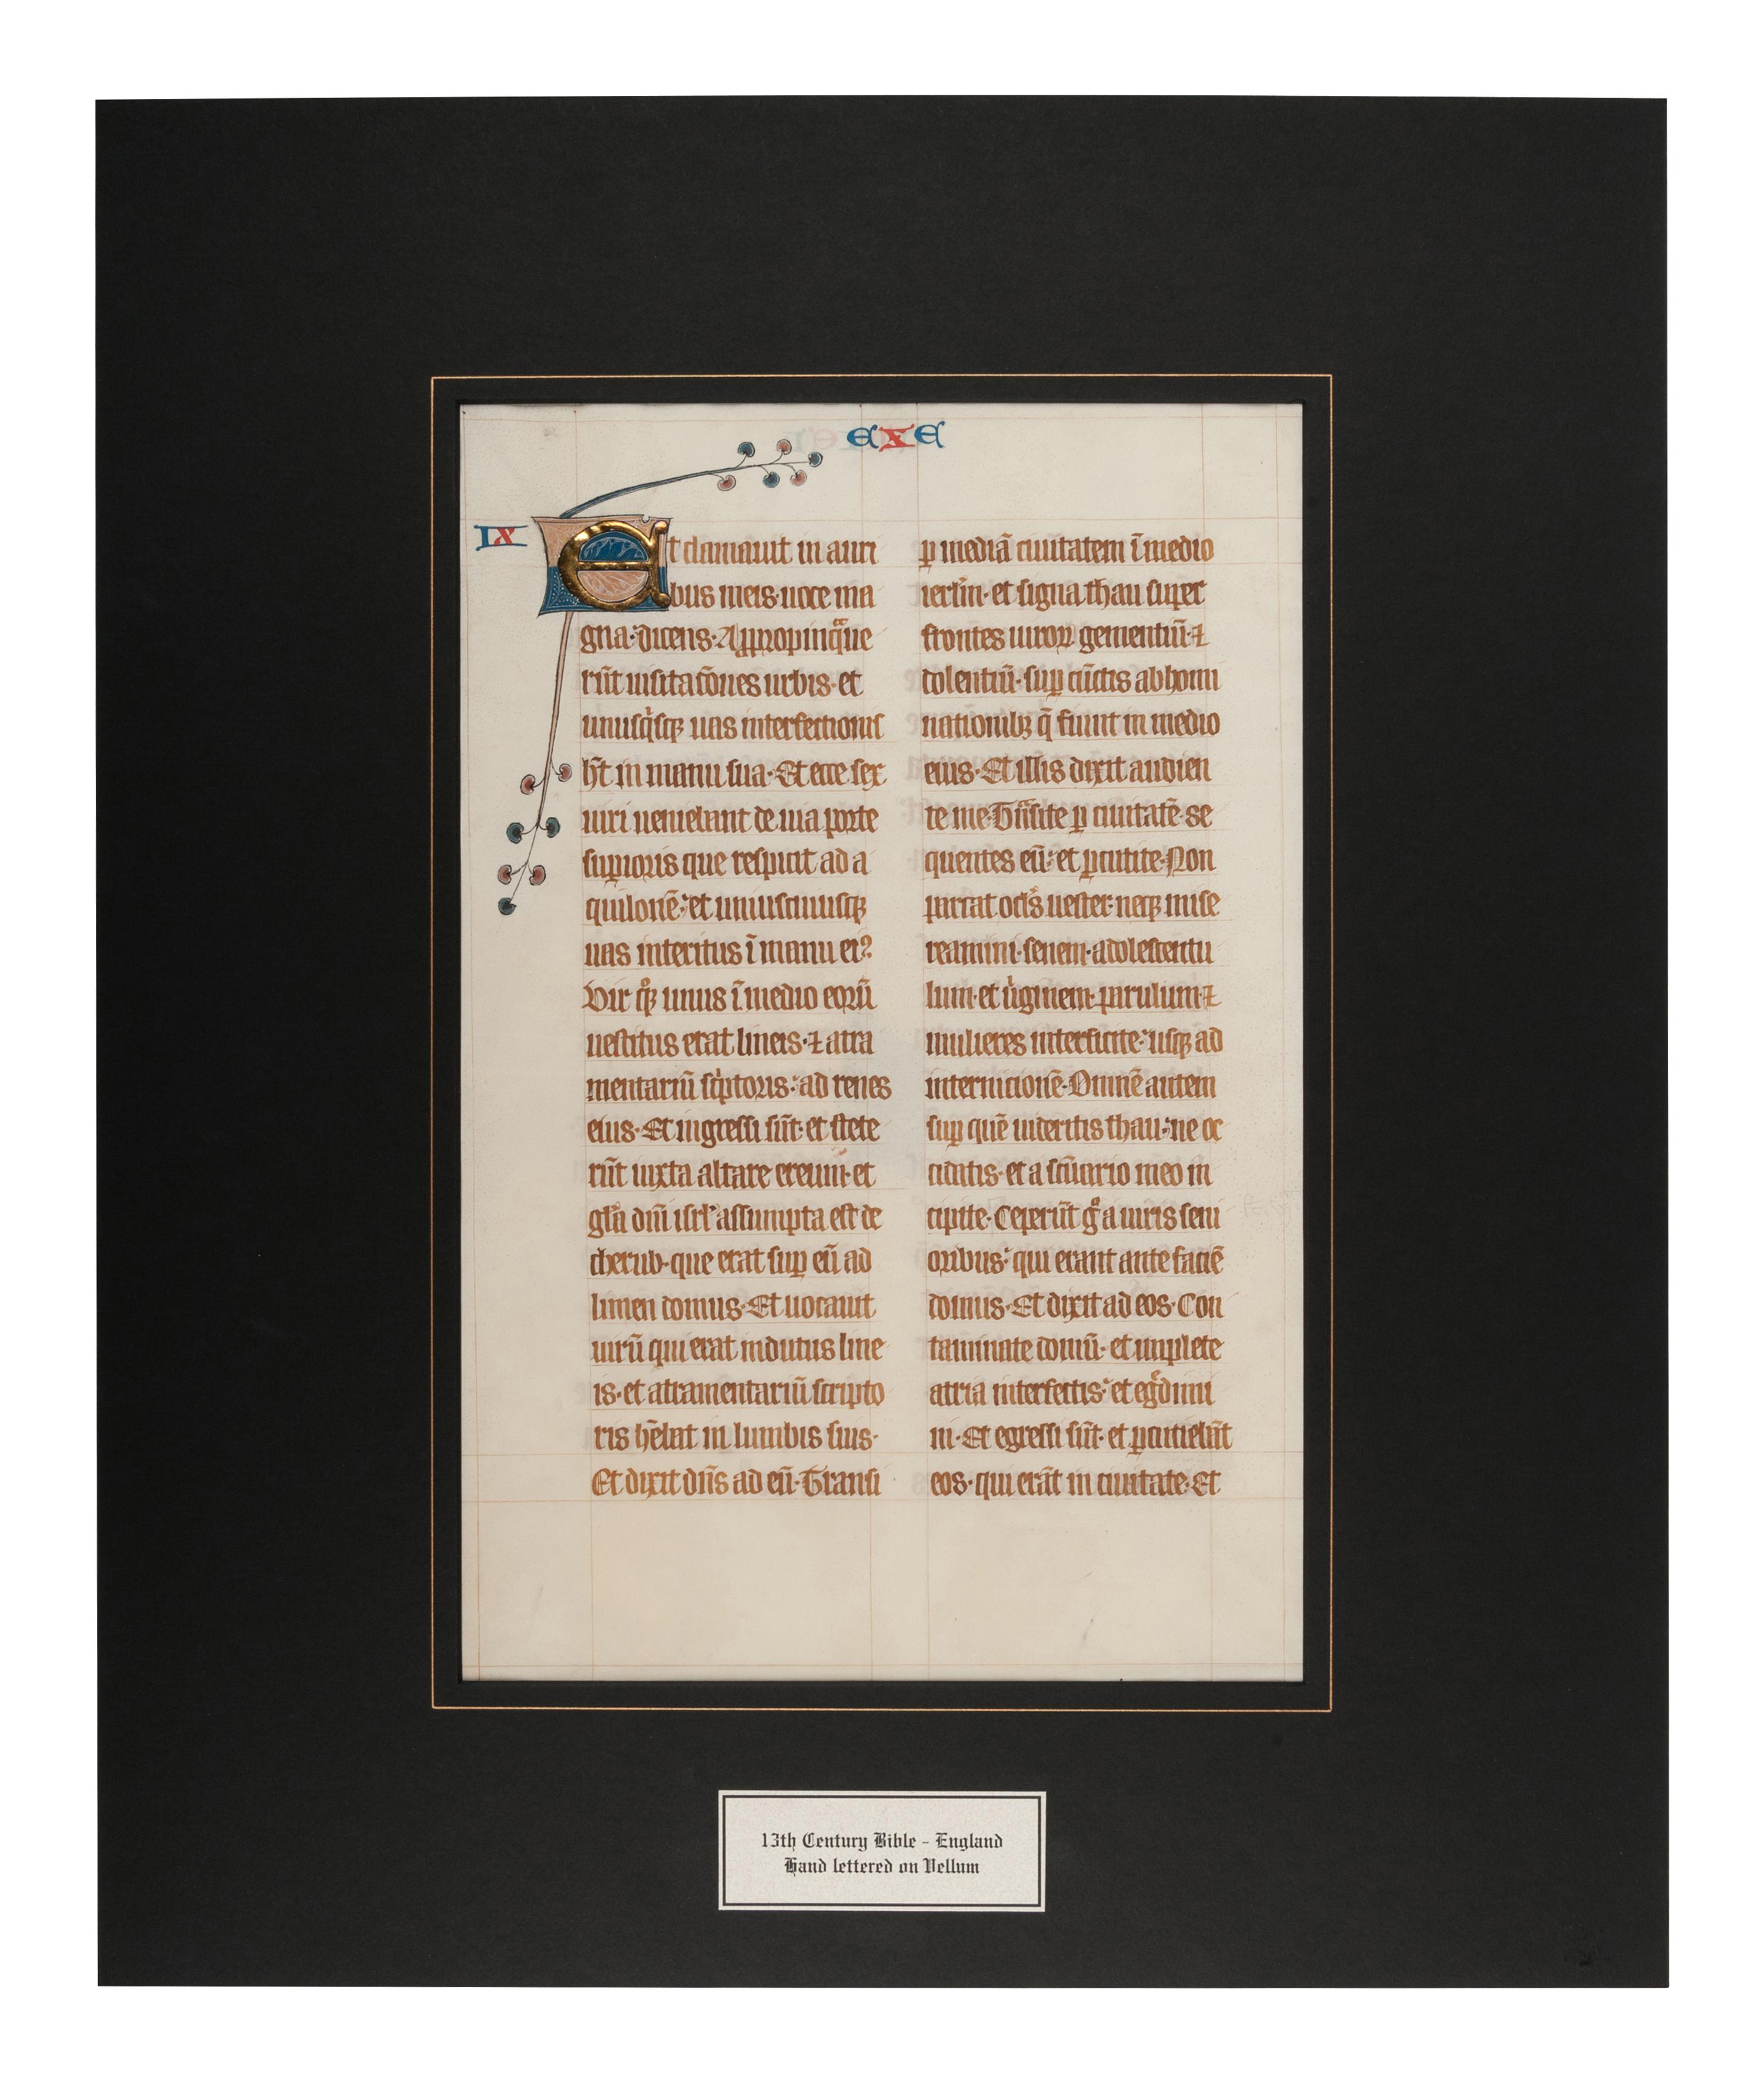 EXE
IX
Et clamauit in auri
bus meis uoce ma
gna dicens. Appropinq̃ue
rũt uisitacõnes urbis. et
unusq̃sqꝫ uas interfectionis
ht̃ in manu sua. Et ecce sex
uiri ueniebant de uia porte
supioris que respicit ad a
quilonẽ. et uniuscuiusqꝫ
uas interitus ĩ manu ei?
Vir qꝫ unus ĩ medio eorũ
uestitus erat lineis. ⁊ atra
mentariũ sc̃ptoris. ad renes
eius. Et ingressi sũt. et stete
rũt iuxta altare ereum. et
gl̃a dñi isrl̃ assumpta est de
cherub. que erat suꝑ eũ ad
limen domus. Et uocauit
uirũ qui erat indutus line
is. et atramentariũ scripto
ris hẽbat in lumbis suis.
Et dixit dñs ad eũ. Transi
ꝑ mediã ciuitatem ĩ medio
ierl̃m. et signa thau super
frontes uiroꝝ gementiũ. ⁊
dolentiũ. suꝑ cũctis abhomi
nationibꝫ q̃ fiunt in medio
eius. Et illis dixit audien
te me. Trãsite ꝑ ciuitatẽ. se
quentes eũ. et ꝑcutite. Non
parcat oc̃ls uester. neqꝫ mise
reamini. senem. adolescentu
lum. et ũginem. paruulum. ⁊
mulieres interficite. usqꝫ ad
internicionẽ. Omnẽ autem
suꝑ quẽ uideritis thau. ne oc
cidatis. et a sc̃uario meo in
cipite. Ceperũt g̊ a uiris seni
oribus. qui erant ante faciẽ
domus. Et dixit ad eos. Con
taminate domũ. et implete
atria interfectis. et eg̃dimi
ni. Et egressi sũt. et ꝑcutiebãt
eos. qui erãt in ciuitate. Et
13th Century Bible - England
Hand lettered on Vellum